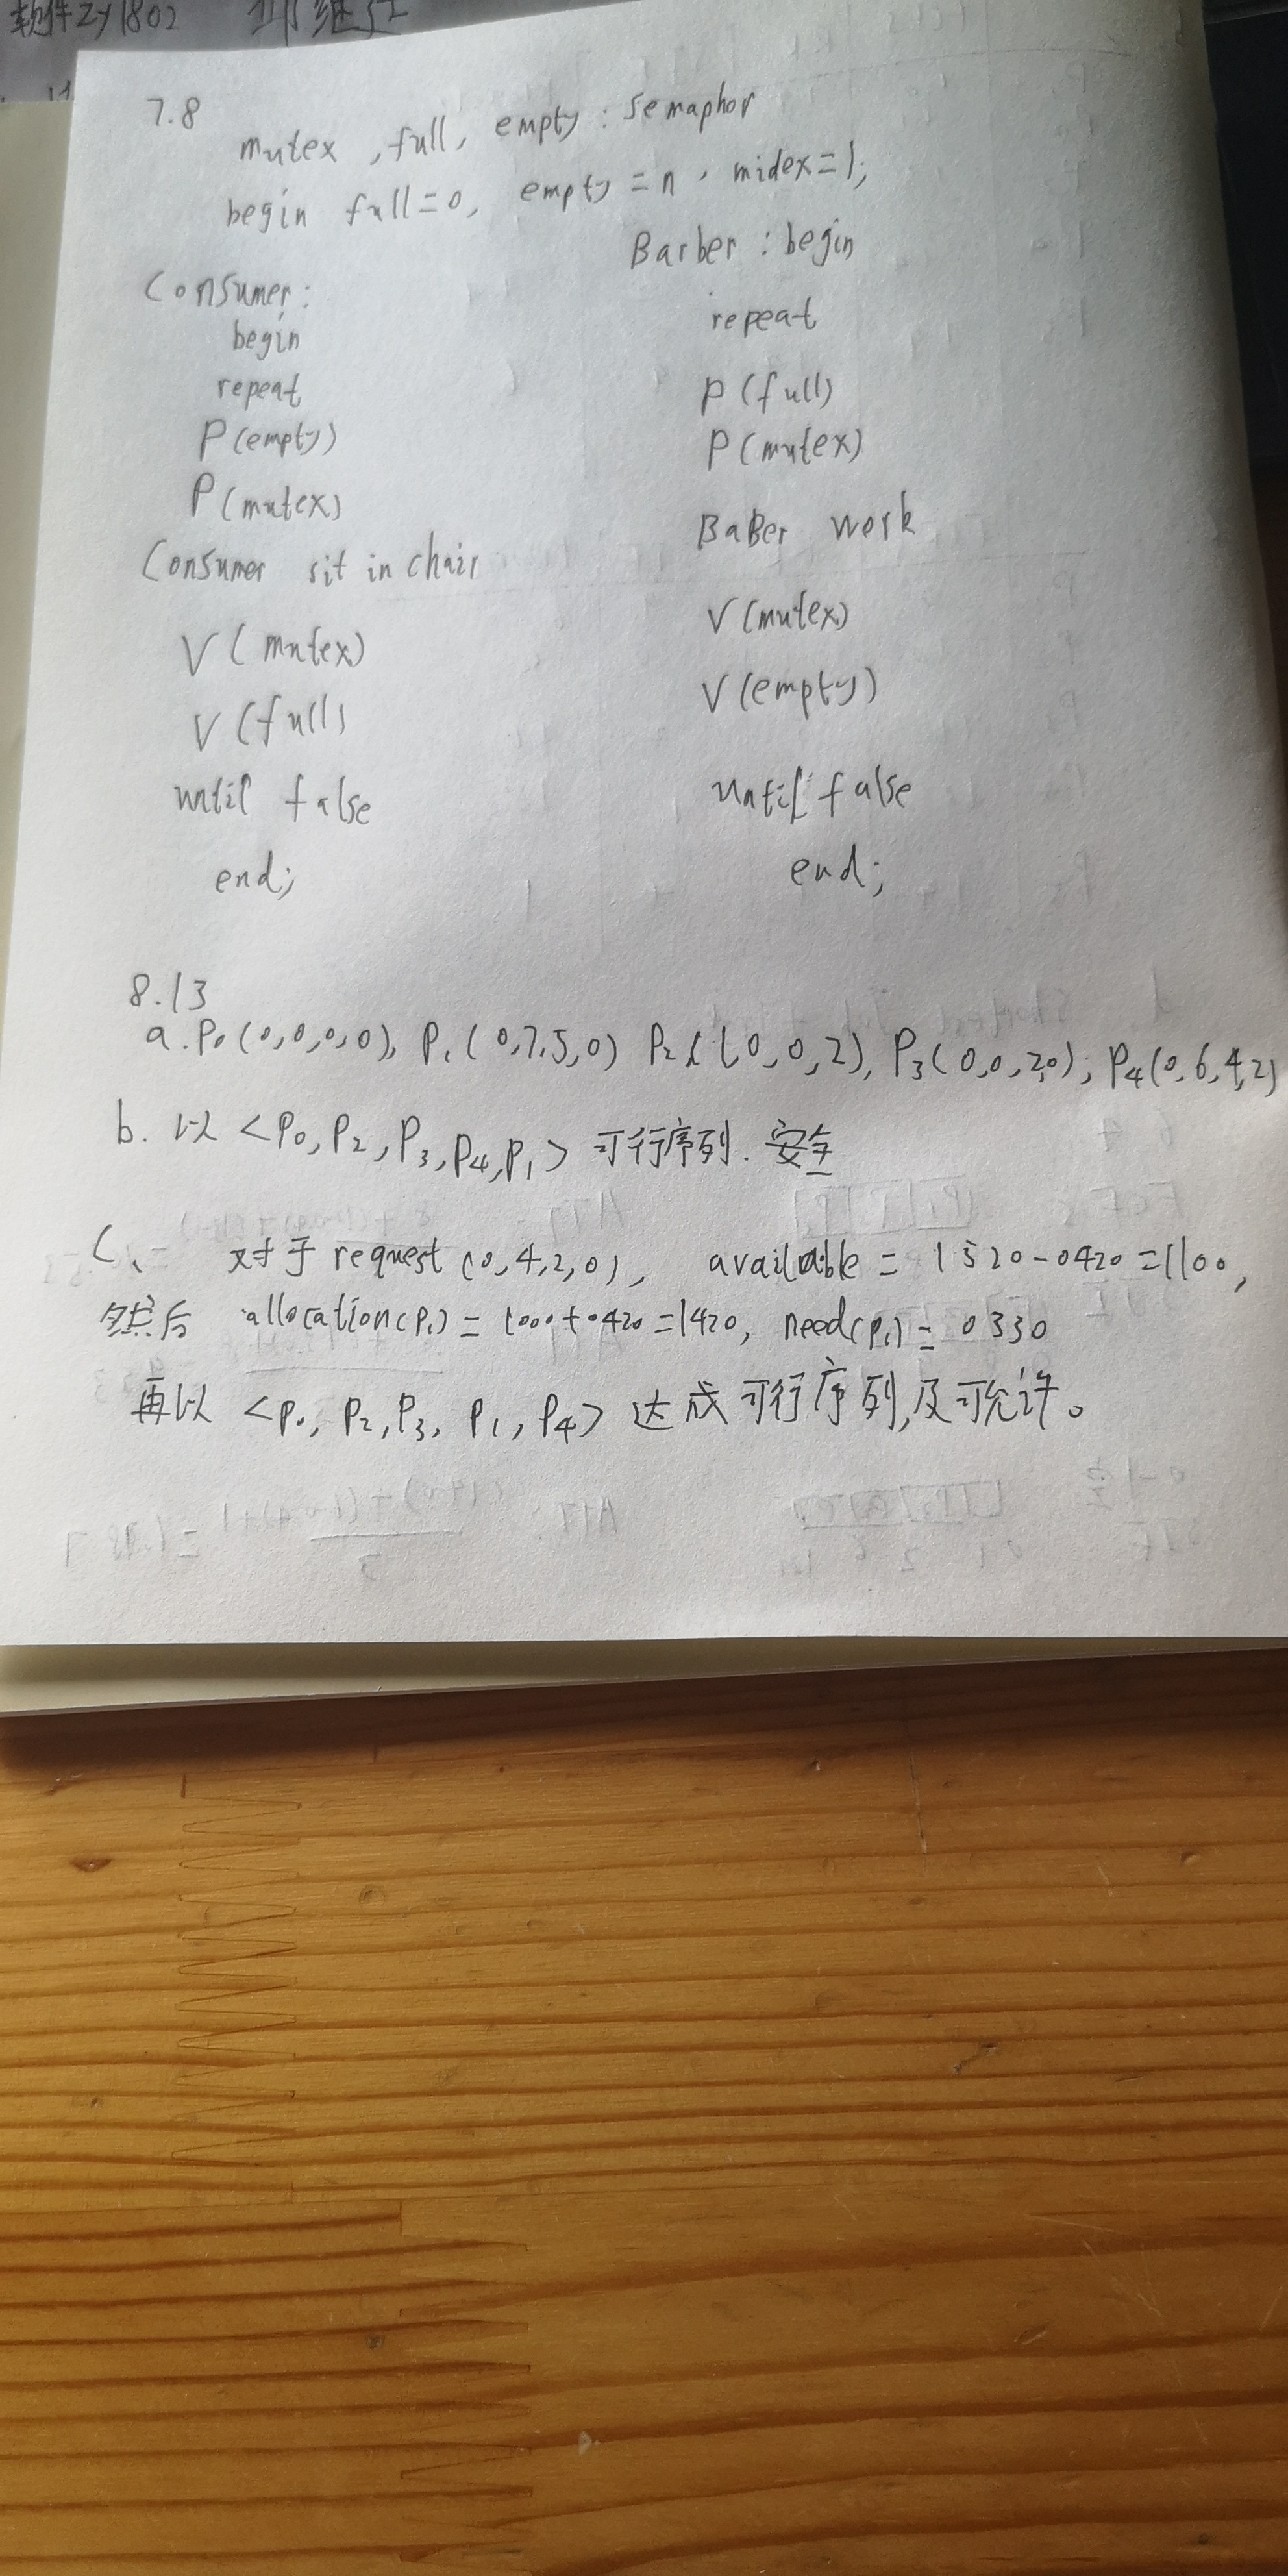 软件zy1802
7.8
mutex, full, empty : Semaphor
begin full=0, empty=n, midex=1;
Consumer:
begin
repeat
P(empty)
P(mutex)
Consumer sit in chair
V(mutex)
V(full)
until false
end;
Barber : begin
repeat
P(full)
P(mutex)
BaBer work
V(mutex)
V(empty)
until false
end;
8.13
a. P0(0,0,0,0), P1(0,7,5,0) P2(1,0,0,2), P3(0,0,2,0); P4(0,6,4,2)
b. 以<P0,P2,P3,P4,P1>可行序列.安全
C、对于request(0,4,2,0), available=1520-0420=1100,
然后 allocation(P1)=1000+0420=1420, need(P1)=0330
再以<P0,P2,P3,P1,P4>达成可行序列,及可允许。